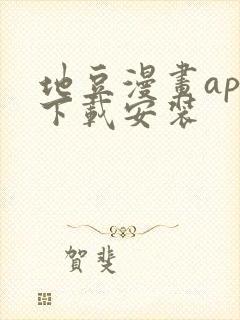 地豆漫畫ap
下載安裝
賀斐